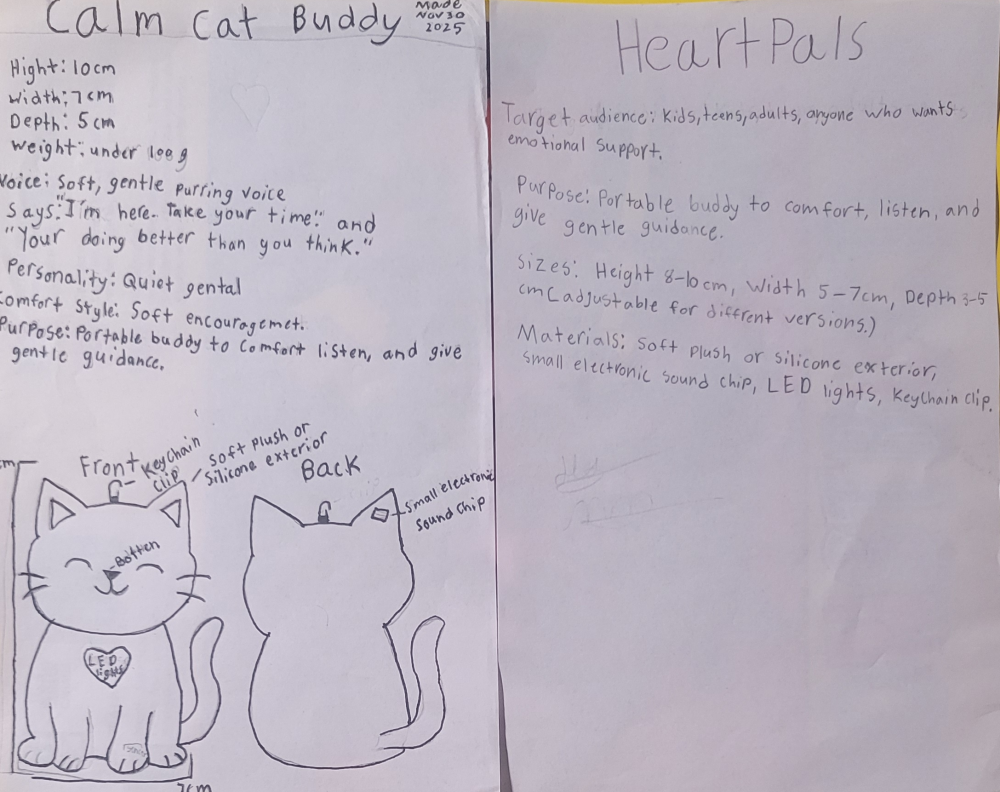 Calm Cat Buddy
Made
Nov 30
2025
Hight: 10cm
Width: 7cm
Depth: 5cm
Weight: under 100g
Voice: Soft, gentle purring voice
Says: "I'm here. Take your time." and
"Your doing better than you think."
Personality: Quiet gental
Comfort Style: Soft encouragemet.
Purpose: Portable buddy to comfort listen, and give
gentle guidance.
Front
Keychain
Clip
Soft plush or
Silicone exterior
Back
Small electronic
sound chip
Botten
LED
lights
7cm
HeartPals
Target audience: Kids, teens, adults, anyone who wants
emotional support.
Purpose: Portable buddy to comfort, listen, and
give gentle guidance.
Sizes: Height 8-10cm, Width 5-7cm, Depth 3-5
cm (adjustable for diffrent versions.)
Materials: Soft plush or silicone exterior,
small electronic sound chip, LED lights, Keychain clip.